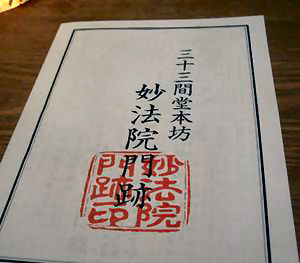 三十三間堂本坊
妙法院門跡
妙法院
門跡印